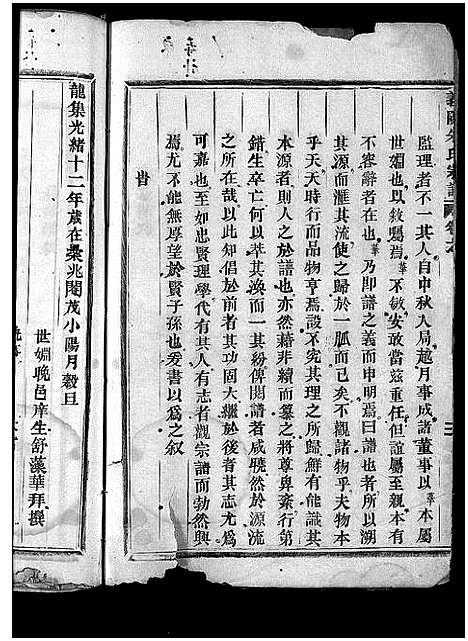 監理者不一其人自中秋入局越月事成諸董事以華本屬
世婣也以敘囑焉華不敏安敢當茲重任但誼屬至親本有
不容辭者在也華乃即譜之義而申明焉曰譜也者所以溯
其源而滙其流使之歸於一脈而已矣不觀諸物乎夫物本
乎天天時行而品物亨焉設不究其理之所歸鮮有能識其
本源者則人之於譜也亦然藉非續而纂之將尊卑紊行第
錯生卒亡何以萃其渙而一其紛俾閱譜者咸曉然於源流
之所在哉以此知倡於前者其功固大繼於後者其志尤為
可嘉也至如忠賢理學代有其人有志者觀宗譜而勃然興
焉尤不能無厚望於賢子孫也爰書以為之叙
旹
龍集光緒十二年歲在柔兆閹茂小陽月穀旦
世婣晚邑庠生舒藻華拜撰